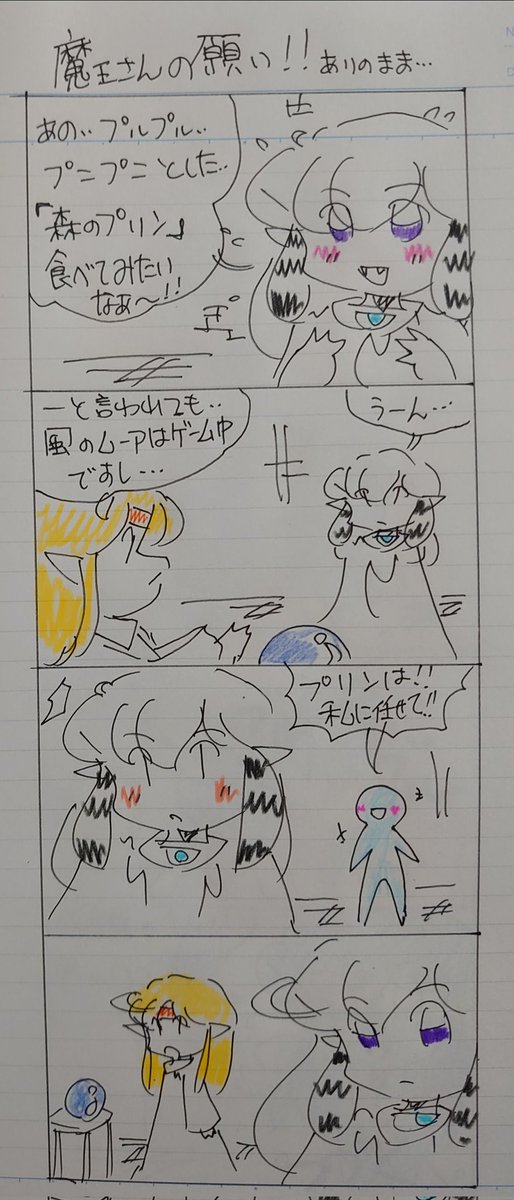 魔王さんの願い!!ありのまま…
あの‥プルプル‥
プニプニとした‥
「森のプリン」
食べてみたい
なぁ〜!!
うーん…
ーと言われても‥
風のムーアはゲーム中
ですし…
プリンは!!
私に任せて!!